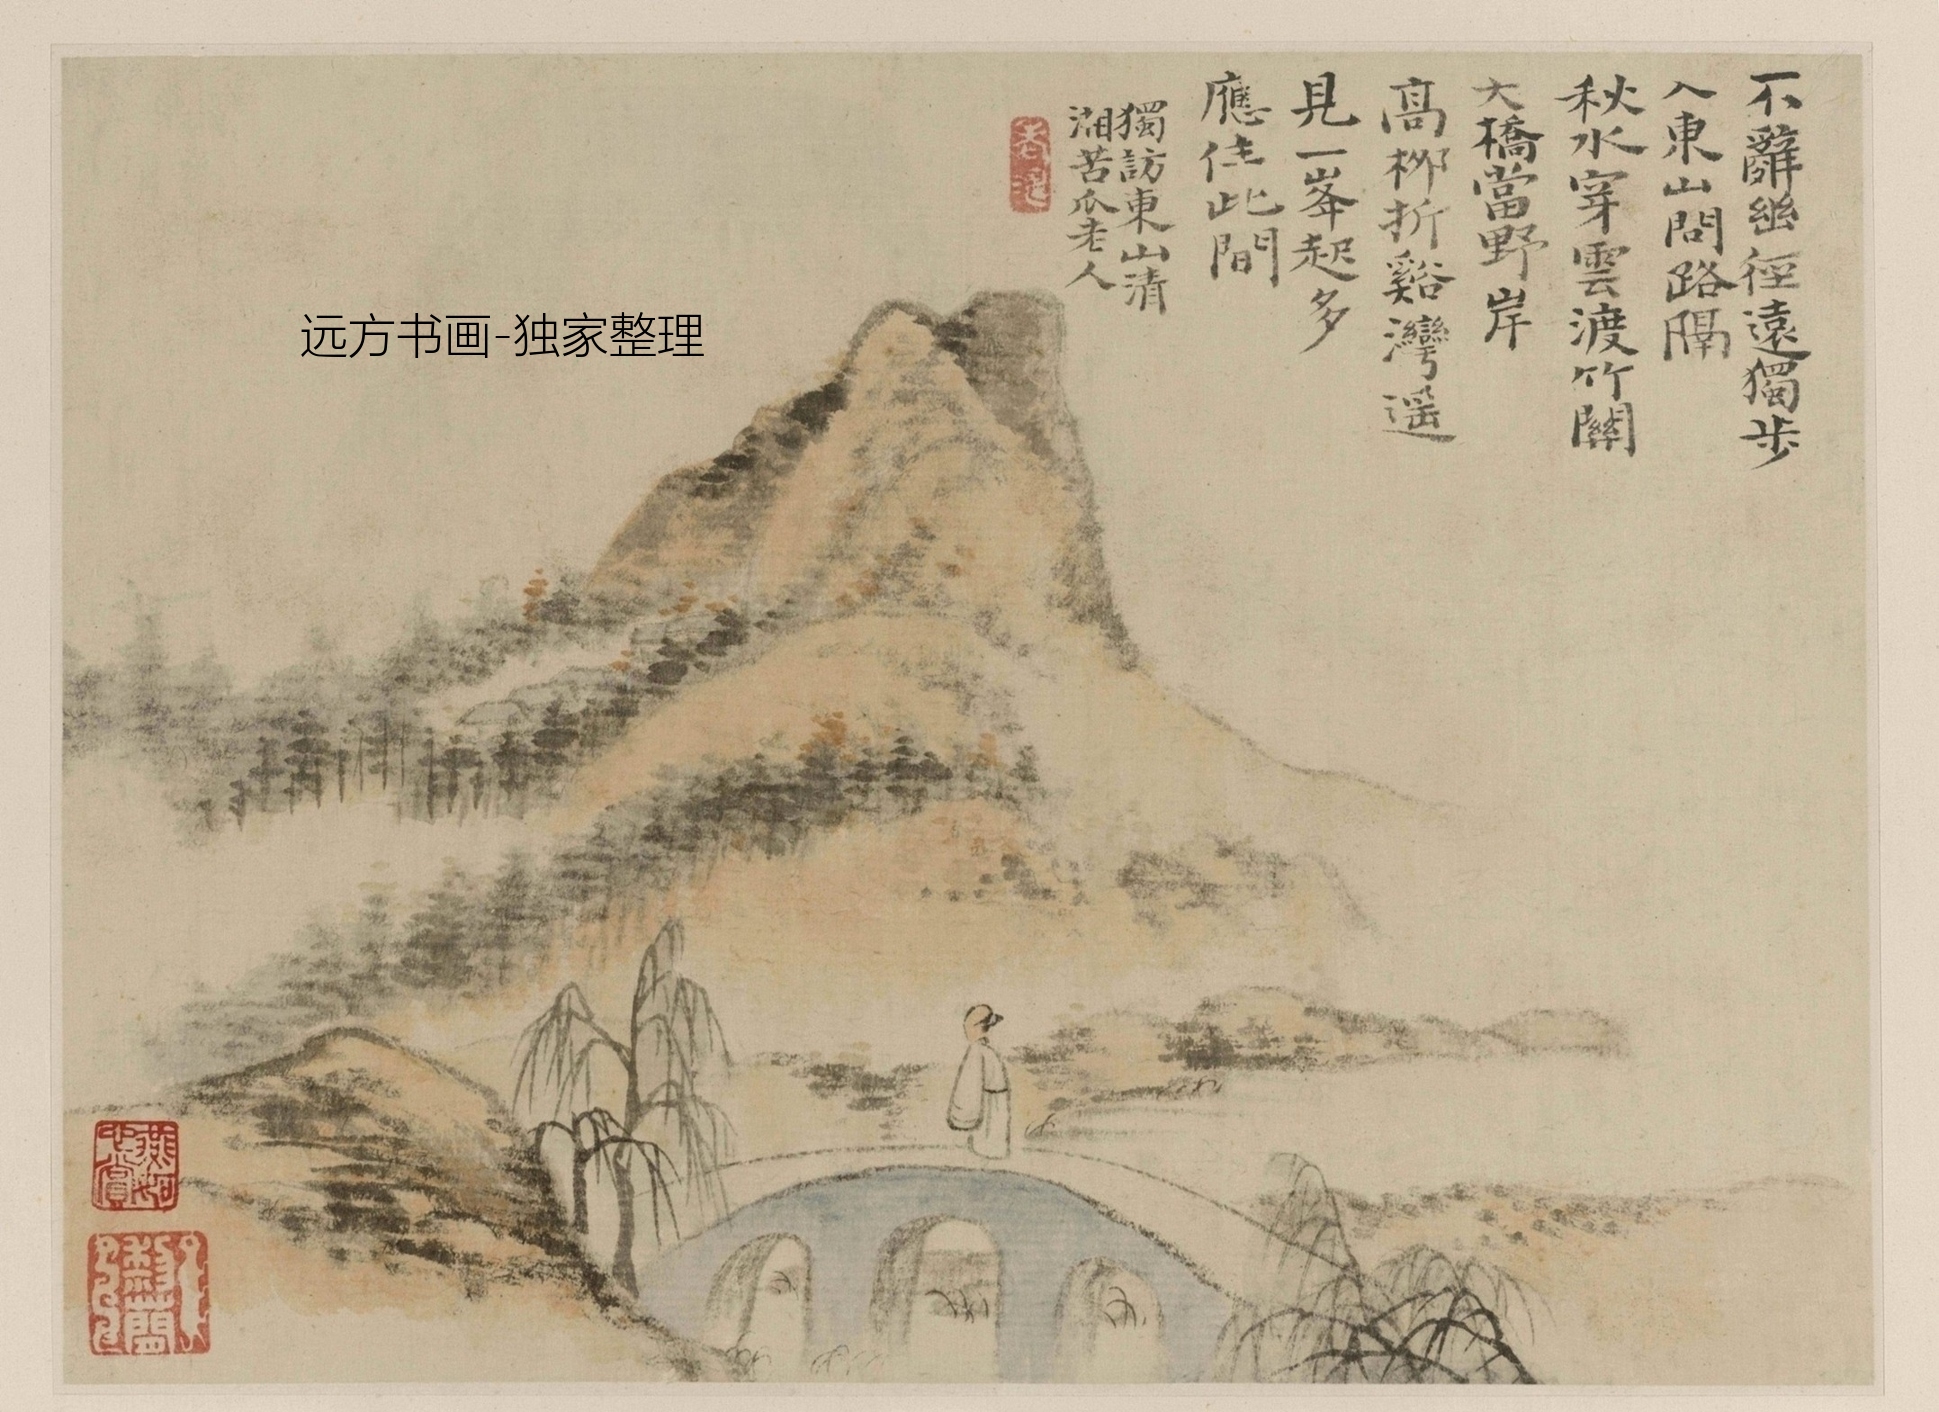 不辭幽徑遠獨步
入東山問路隔
秋水穿雲渡竹關
大橋當野岸
高柳折谿灣遥
見一峯起多
應住此間
獨訪東山清
湘苦瓜老人
远方书画-独家整理